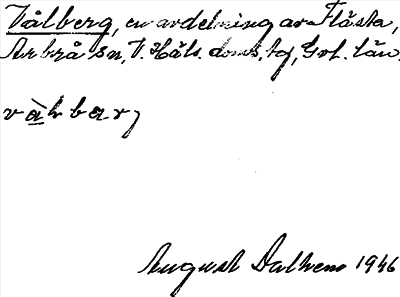 Vålberg, en avdelning av Flästa,
Arbrå sn, V. Häls. doms. tg, Gvl. län.
vàlbarj
August Dalhem 1946